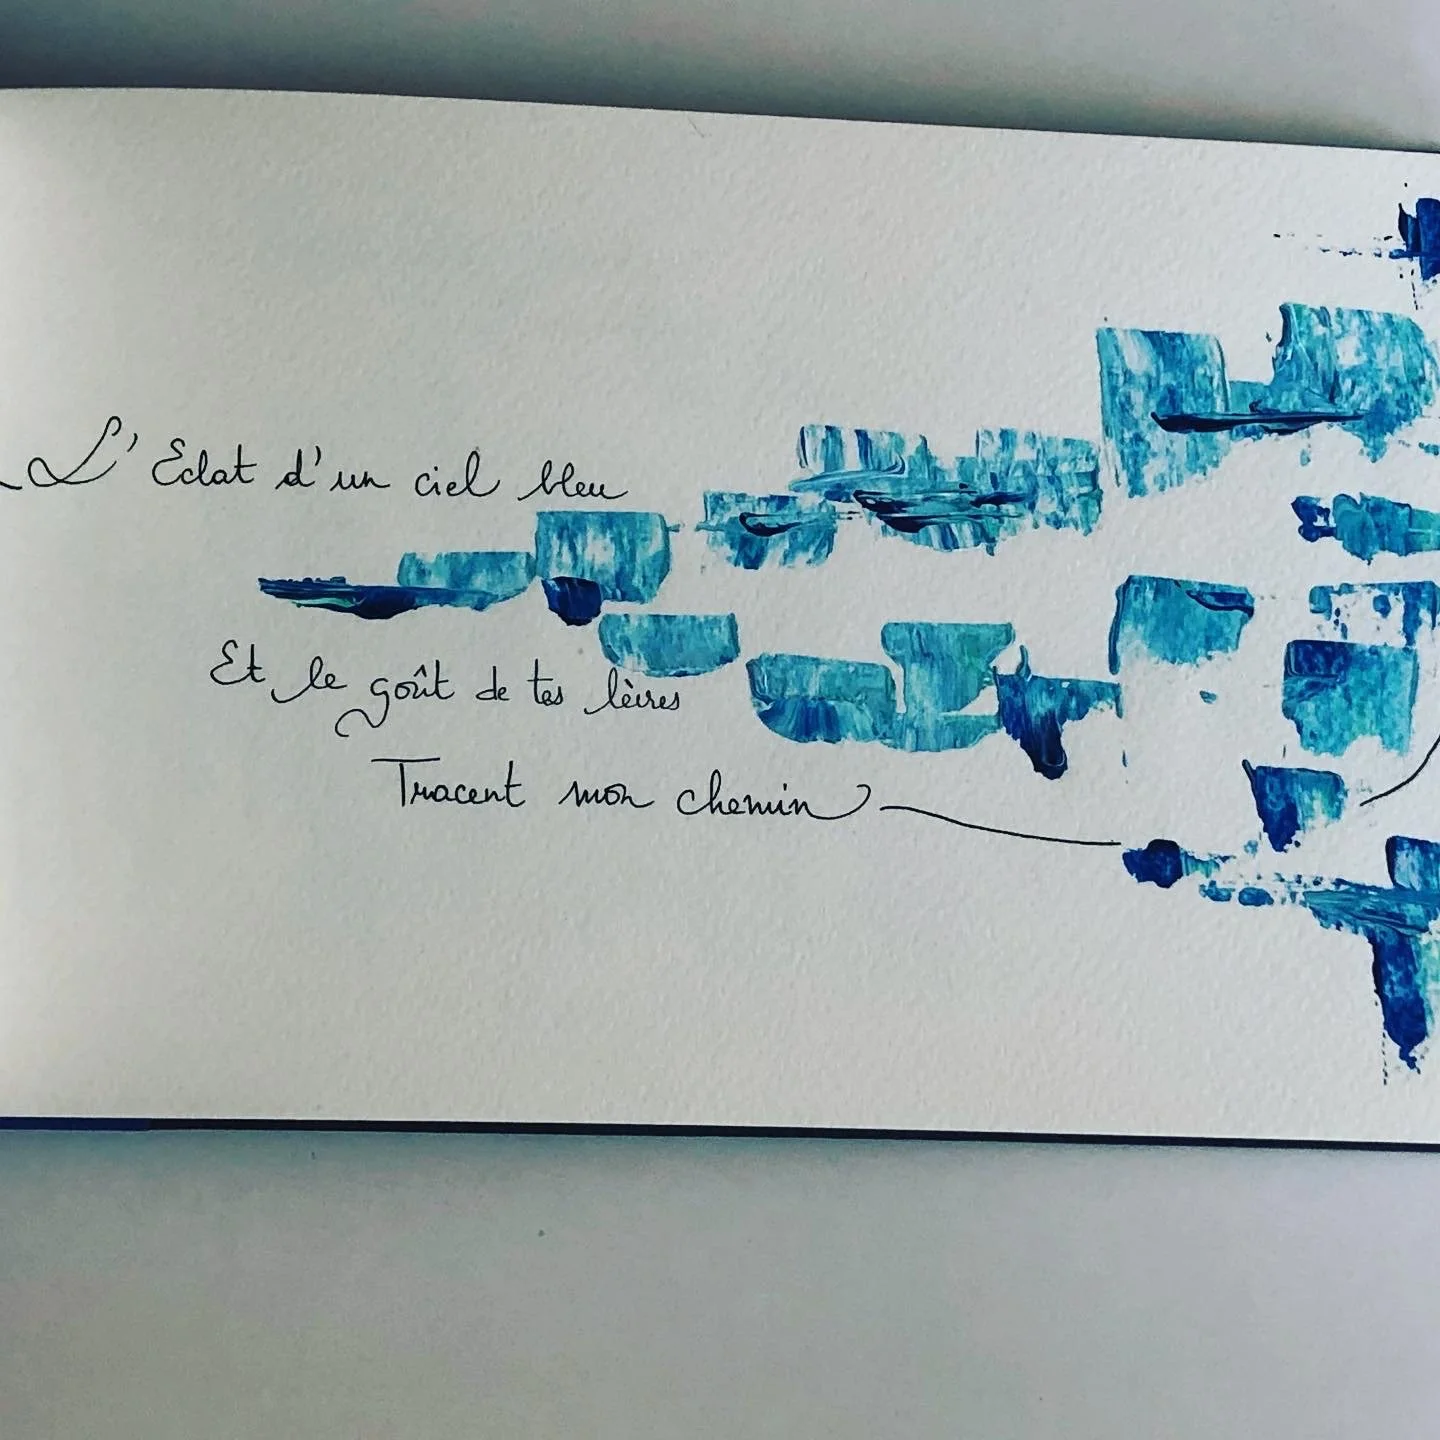 L' Eclat d'un ciel bleu
Et le goût de tes lèvres
Tracent mon chemin